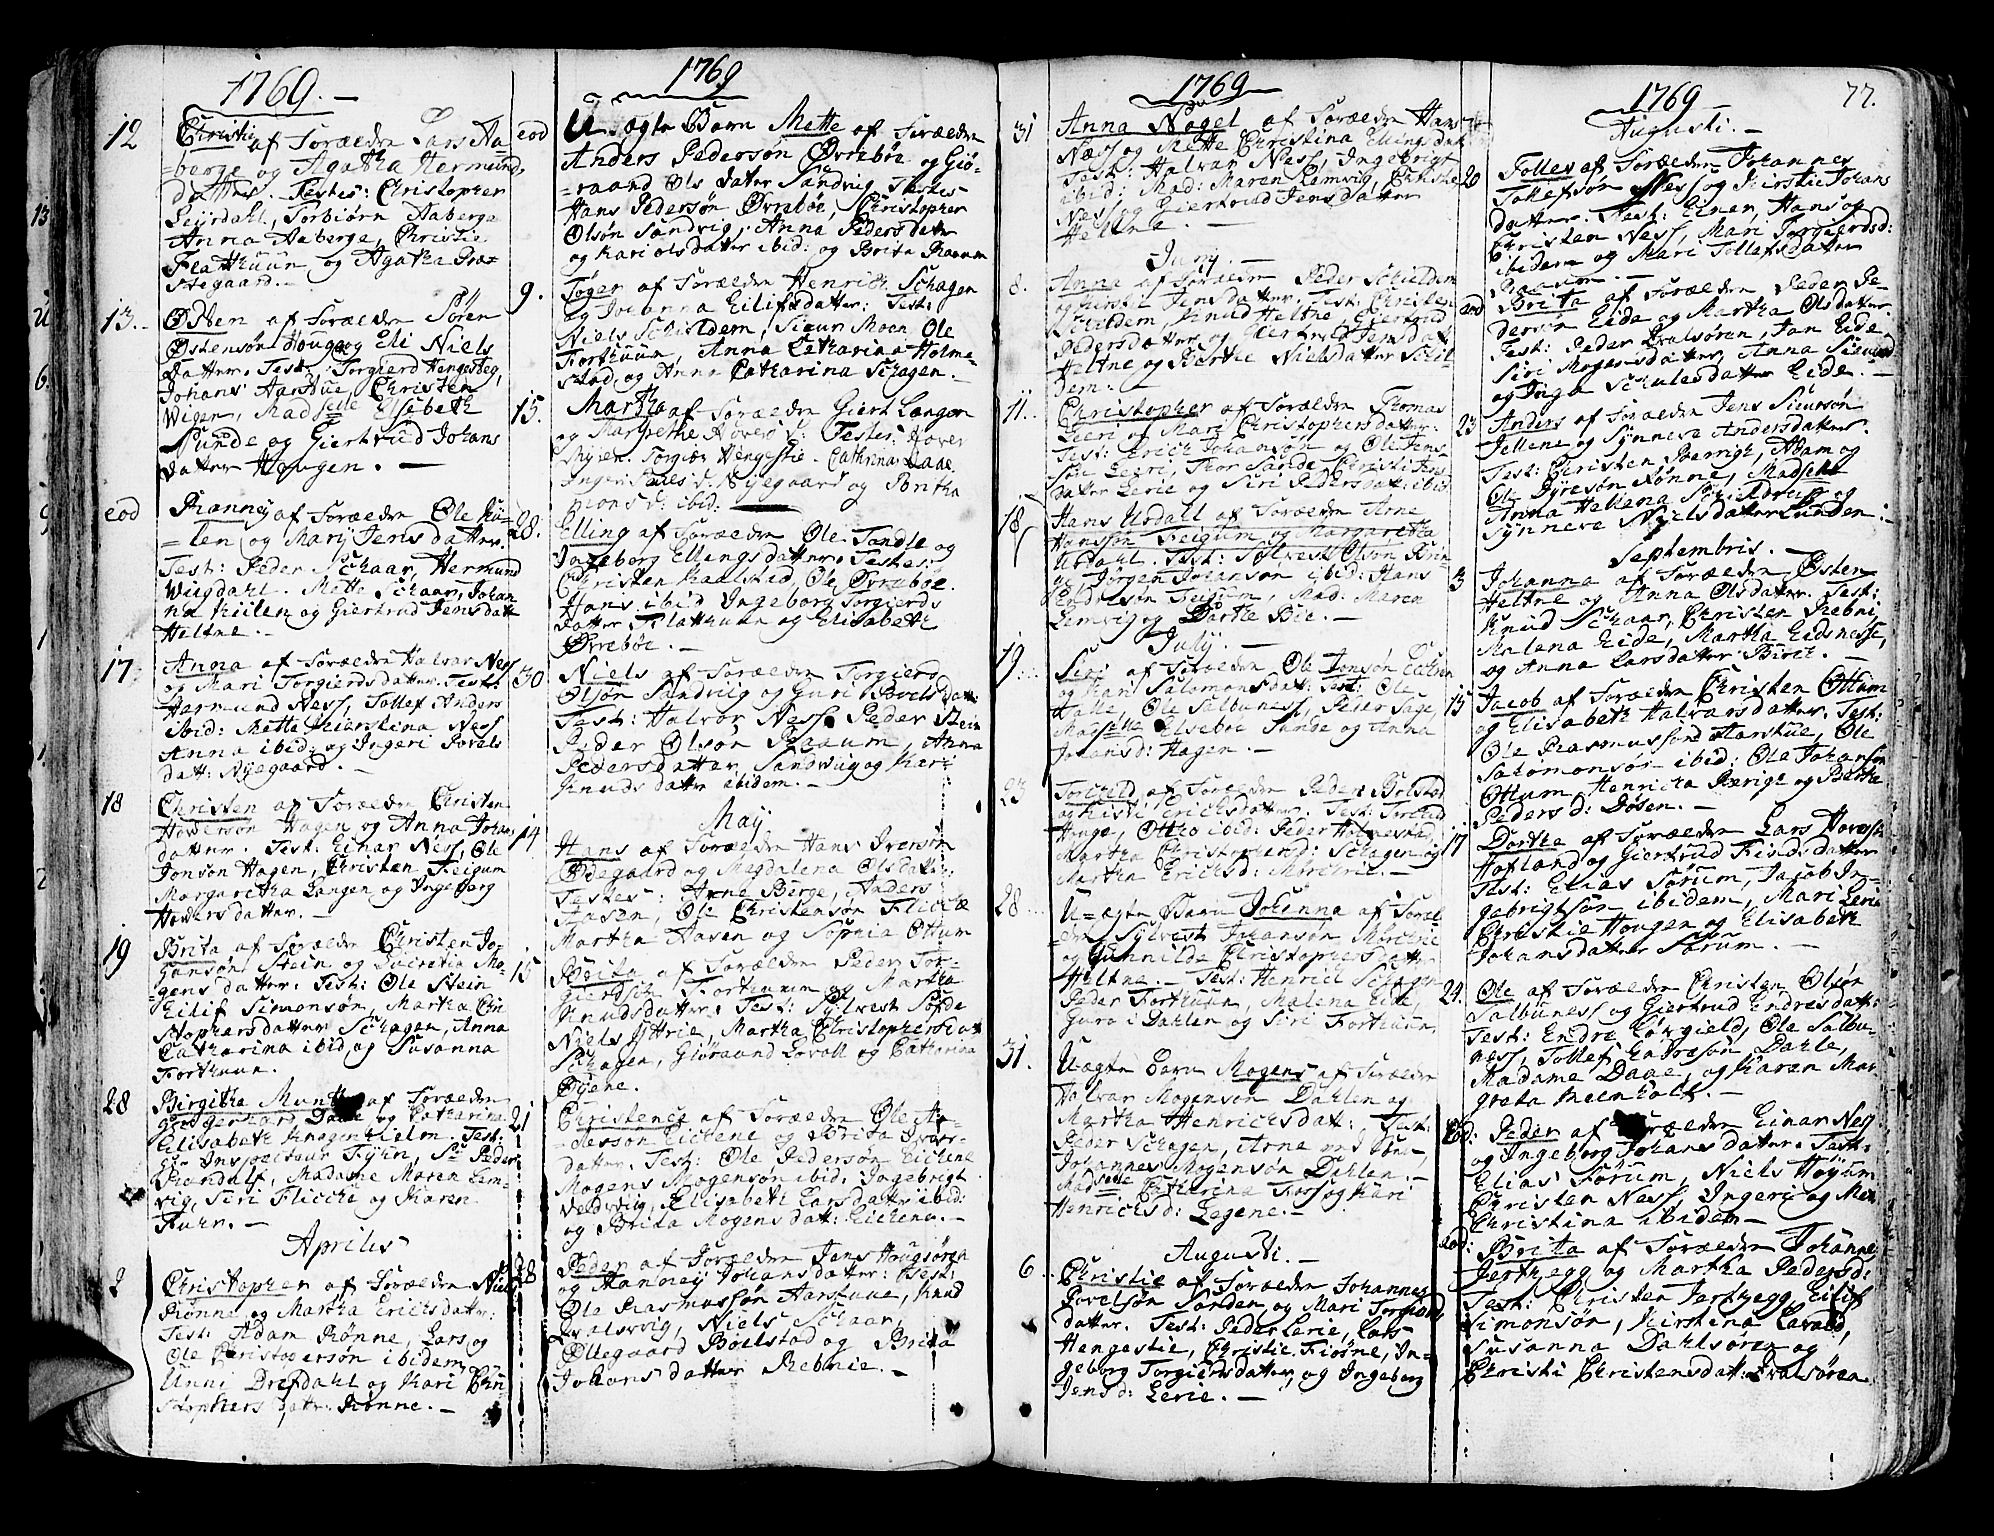 1769.
12 Christi af Forældre Lars Aa-
=berge og Agatha Hermunds
datter. Testes: Christopher
Torbiørn Aaberge
Anna Aaberge, Christie
Flathuun og Agatha Præ-
stegaard.
13. Østen af Forældre Sören
Østensøn Houge og Eli Niels
datter. Test: Torgierd Hengesteg,
Johans Aarstue, Christen
Wigen, Madselle Elsebeth
Sunde og Giertrud Johans
datter Hougen.
eod Ranney af Forældre Ole Kü-
=len og Mary Jens datter.
Test: Peder Schaar, Hermund
Wugdahl. Mette Schaar, Johan
na Küilen og Giertrud Jensdatt
Heltne.
17. Anna af Forældre Halvar Ness
og Mari Torgierdsdatter. Test:
Hermund Ness, Tollef Anders
ibid: Mette Kierstina Ness
Anna ibid: og Ingeri Povels
datt: Nyegaard.
18 Christen af Forældre Christen
Howersøn Hagen og Anna Johans
datter. Test: Einar Ness, Ole
Jonsøn Hagen, Christen Feigum
Margaretha Langen og Ingeborg
Howersdatter.
19 Brita af Forældre Christen Jo-
hansøn Stein og Lucretia Mo-
=gensdatter. Test: Ole Stein
Eilif Simonsøn, Martha Chri
stophersdatter Schagen, Anna
Catharina ibid og Susanna
Forthuun.
28 Birgitha Munthe af Forældre
Daae og Catharina
Elisabeth Knagenhielm. Test:
Hr Inspecteur Fyhn, Sr Peder
Randulf, Madame Maren Lem-
vig, Siri Flicche og Karen
Fuhn.
Aprilis
2 Christopher af Forældre Niels
Rønne og Martha Erichsdatter:
Test: Adam Rønne, Lars og
Ole Christophersøn ibidem
Unni Drefdahl og Kari Chri
stophers datr: Rønne.
1769
eod U=ægte Barn Mette af Forældre
Anders Pedersøn Øvrebøe og Giø-
=raand Ols datter Sandvig. Testes
Hans Pedersøn Øvrebøe, Christopher
Olsøn Sandvig, Anna Pedersdatter
og Kari Olsdatter ibid: og Brita Raaum
9. Töger af Forældre Henrich Schagen
og Johanna Eilifsdatter: Test:
Niels Schieldem, Sigur Moen, Ole
Forthuun, Anna Catharina Holme
stad og Anna Catharina Schagen.
15. Martha af Forældre Giert Langen
og Margrethe Howers d: Testes: Hover
Myien. Torgier Hengestie. Cathrina Daae
Inger Povels d. Nyegaard og Dortha
mons d: ibid:
28. Elling af Forældre Ole Sandle og
Ingeborg Ellingsdatter. Testes:
Christen Kaalstad, Ole Øvrebøe.
Hans ibid Ingeborg Torgierds
datter Flathuun og Elisabeth
Øvrebøe.
30 Niels af Forældre Torgierd
Olsøn Sandvig og Guri Povels datt:
Test: Halvor Ness. Peder Stein
Peder Olsøn Raaum, Anna
Pedersdatter Sandvig og Kari
Knudsdatter ibidem.
May
14 Hans af Forældre Hans Iversøn
Ødegaard og Magdalena Olsdatter:
Testes: Arne Berge, Anders
Aasen, Ole Christensøn Fliche
Martha Aasen og Sophia Ottum
15 Brita af Forældre Peder Tor-
gierdsøn Forthuun og Martha
Knudsdatter. Test: Sylvest Søfde
Niels Yttrie, Martha Christophersdatt
Schagen, Giøraand Lovoll og Catharina
Øyene.
21 Christence af Forældre Ole An-
=dersøn Eichene og Brita Iver-
datter. Test: Ole Pedersøn Eichene
Mogens Mogensøn ibid, Ingebrigt
Veldvig, Elisabeth Larsdatter ibid:
og Brita Mogensdatt: Eichene.
28 Peder af Forældre Jens Hougsøren
og Hanney Johansdatter: Test:
Ole Rasmussøn Aarstuue, Knud
Qvalsvig, Niels Schaar,
Ollegaard Bøelstad og Brita
Johans datter Rebnie.
1769
31 Anna Nagel af Forældre Hans
Næss og Mette Christina Ellings datter
Test: Halvar Ness, Ingebrigt
ibid: Mad: Maren Lemvig, Christie
Ness og Giertrud Jensdatter
Heltne.
Juny.
8. Anna af Forældre Peder Schieldem
og Kirstie Jensdatter. Test: Christen
Schieldem, Knud Heltne, Giertrud
Pedersdatter og Giertrud Jensdatt
Heltne og Birthe Nielsdatter Schil
dem.
11. Christopher af Forældre Thomas
Lieri og Mari Christophersdatter:
Test: Erich Johansøn og Ole Jens
søn Lerie, Thor Sande, Christi Jens
datter Lerie og Siri Pedersdatt: ibid
18 Hans Urdall af Forældre Arne
Hanssøn Feigum og Margaretha
Urdahl. Test: Sylvest Olsøn
og Jørgen Johansøn ibid: Hans
Endresøn Feigum, Mad: Maren
Lemvig og Dorthe Bøe.
July.
19. Siri af Forældre Ole Jonsøn
og Kari Salomonsdat: Test: Ole
Halle, Ole Salbuness, Peter Sage,
Madselle Elsebøe Sunde og Anna
Johansd: Hagen.
23 Torchild af Forældre Peder Bolstad
og Kisti Erichsdatter. Test: Torchild
Houge, Otteo ibid: Peder Holmestad
Martha Christophersd: Schagen og
Martha Erichsd:
28 U=ægte Barn Johanna af Foræl
dre Sylvest Johansøn
og Gunnilde Christophersdatter
Heltne. Test: Henrich Schagen
Peder Forthuun, Malena Eide,
Guro i Dahlen og Siri Forthuun
31. Uægte Barn Mogens af Forældre
Halvar Mogensøn Dahlen og
Martha Henrichsdat:, Test:
Peder Schagen, Arne
Johannes Mogensøn Dahlen.
Madselle Catharina Forss og Kari
Henrichsd: Legene.
Augusti.
6 Christie af Forældre Johannes
Povelsøn Sanden og Mari Torgierds
datter. Test: Peder Lerie, Lars
Hengestie, Christie Fiøsne, In-
geborg Torgiersdatter og Ingeborg
Jensd: Lerie.
1769
77.
Augusti.
20 Tollef af Forældre Johannes
Tollefsøn Ness og Kirstie Johans
datter: Test: Einer, Hans og
Christen Ness, Mari Torgierdsd:
ibidem og Mari Tollefsdatter
Raaum.
eod Brita af Forældre Peder Pe-
dersøn Eide og Martha Olsdatter.
Test: Peder Qvalsøren, Jan Eide,
Siri Mogensdatter, Anna Sigurd
og Inga Schulesdatter Eide.
23 Anders af Forældre Jens Siursøn
Jellene og Synneve Andersdatter.
Test: Christen Berrige, Adam og
Ole Dyresøn Rønne, Madselle
Anna Helena Sophia Adrup og
Synneve Nielsdatter Lunden.
Septembris.
3 Johanna af Forældre Østen
Heltne og Anna Olsdatter. Test:
Knud Schaar, Christen Rebni
Malena Eide, Martha Eidsnesse,
og Anna Larsdatter Birch.
15 Jacob af Forældre Christen Ottum
og Elisabeth Halvarsdatter. Test:
Ole Rasmussøn Aarstue, Ole
Salomonsøn ibid: Ole Johansøn
Ottum, Henricha Rærige og Berthe
Pedersd: Døsen.
17 Dorthe af Forældre Lars
Hofland og Giertrud Findsdatter
Test: Elias Sørum, Jacob In-
gebrigtsøn ibidem, Mari Lerie
Christie Hougen og Elisabeth
Johansdatter Sørum.
24. Ole af Forældre Christen Olsøn
Salbuness og Giertrud Endresdatt:
Test: Endre Lørgield, Ole Salbu-
ness, Tollef Ladvesøn Dahle,
Madame Daae, og Karen Mar
greta Meenholt.
eod: Peder af Forældre Einar Ness
og Ingeborg Johansdatter. Test:
Elias Sørum, Niels Høyum
Christen Ness, Ingeri og Met
Christina ibidem
eod: Brita af Forældre Johannes
Jerthegg og Martha Pedersd:
Test: Christen Jerthegg, Eilif
Simonsøn, Kirstina Lavold,
Susanna Dahlsøren og
Christi Christensdatt: Qvalsøren